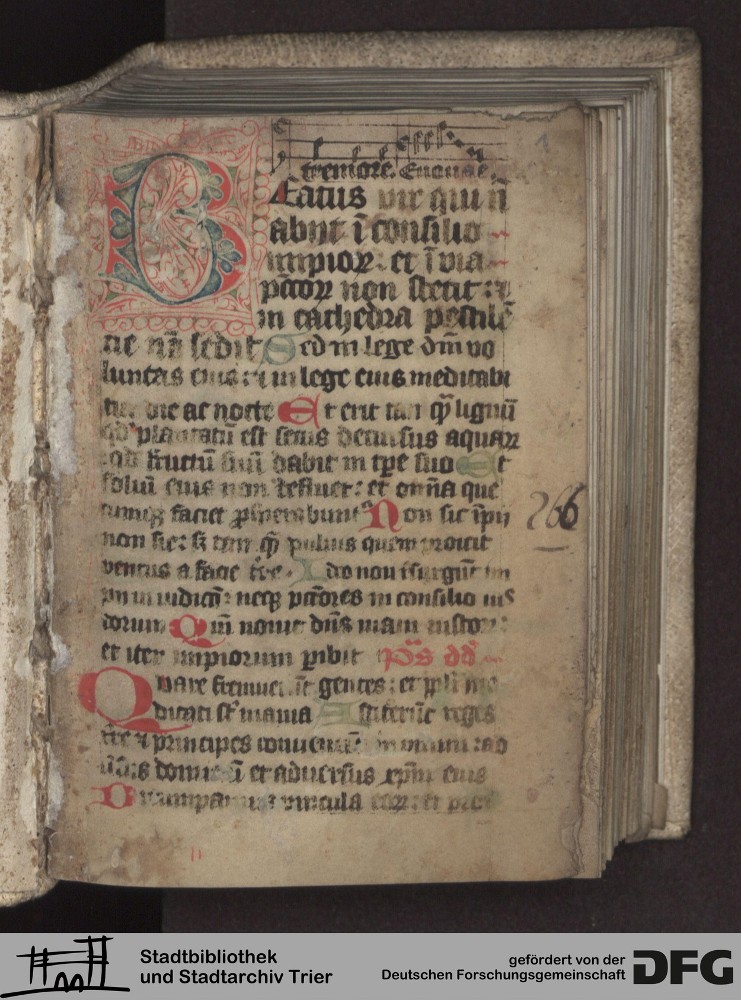 1
tremore. Euouae.
Beatus vir qui nō
abijt ī consilio
impioꝝ: et ī via
pc̄toꝝ non stetit: et
in cathedra pestilē
tie nō sedit Sed in lege dn̄i vo
luntas eius: et in lege eius meditabi
tur die ac nocte Et erit tan̄ qͣ̄ lignū
qd̓ plantatū est secus decursus aquaꝝ
qd̓ fructū suū dabit in tp̄e suo Et
foliū eius non defluet: et om̄ia que
cumqꝫ faciet ꝓsperabunt᷑ Non sic īpij
non sic: sꝫ tan̄ qͣ̄ puluis quem proicit
ventus a facie t̄re. Ideo non resurgūt im
pij in iudicio: neqꝫ pc̄tores in consilio ius
torum Qm̄ nouit dn̄s viam iustoꝝ:
et iter impiorum ꝑibit p̄s dd̓
Quare fremuerūt gentes: et pp̄li me
ditati sūt inania Astiterūt reges
t̄re et principes conuenerūt in vnum: ad
uersus dominū et aduersus xp̄m eius
Dirumpamus vincula eoꝝ: et proi
266
Stadtbibliothek
und Stadtarchiv Trier
gefördert von der
Deutschen Forschungsgemeinschaft
DFG